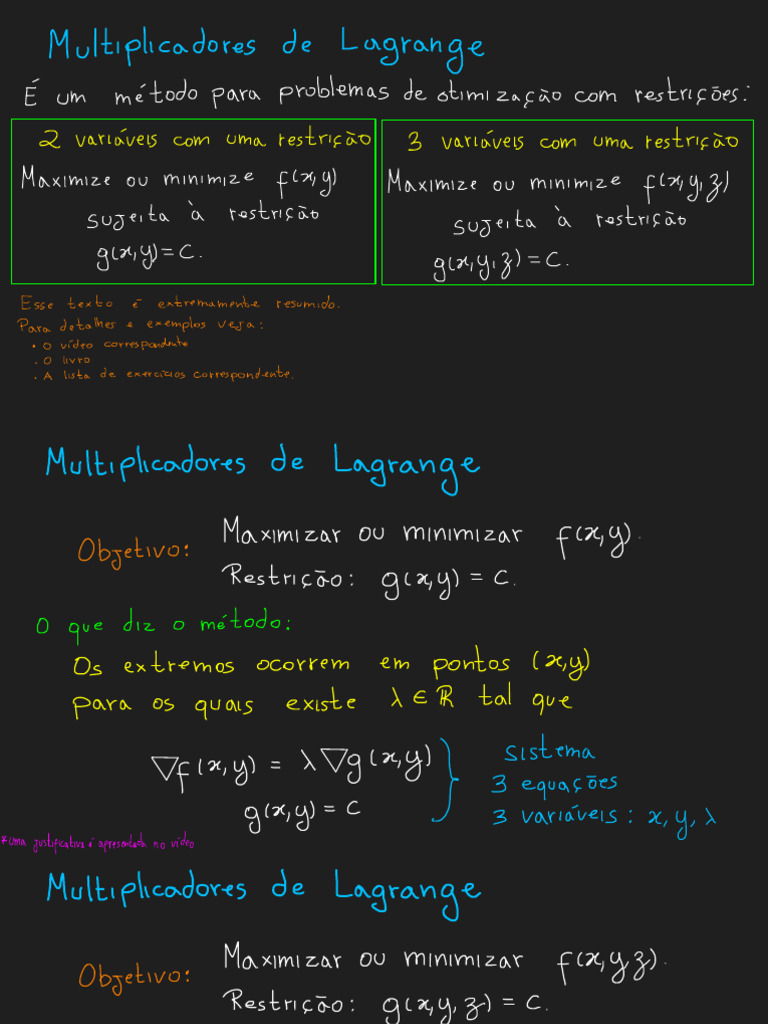 Multiplicadores de Lagrange
É um método para problemas de otimização com restrições:
2 variáveis com uma restrição
Maximize ou minimize f(x,y)
sujeita à restrição
g(x,y) = C.
3 variáveis com uma restrição
Maximize ou minimize f(x,y,z)
sujeita à restrição
g(x,y,z) = C.
Esse texto é extremamente resumido.
Para detalhes e exemplos veja:
• O vídeo correspondente
• O livro
• A lista de exercícios correspondente.
Multiplicadores de Lagrange
Objetivo: Maximizar ou minimizar f(x,y).
Restrição: g(x,y) = C.
O que diz o método:
Os extremos ocorrem em pontos (x,y)
para os quais existe λ ∈ ℝ tal que
∇f(x,y) = λ∇g(x,y)
g(x,y) = C
sistema
3 equações
3 variáveis: x, y, λ
*uma justificativa é apresentada no vídeo
Multiplicadores de Lagrange
Objetivo: Maximizar ou minimizar f(x,y,z).
Restrição: g(x,y,z) = C.